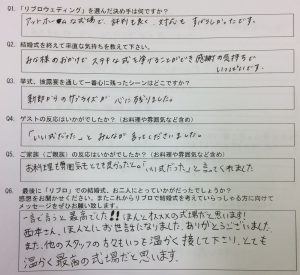 01. 「リブロウェディング」を選んだ決め手は何ですか?
アットホームな式場で、評判も良く、対応もすばらしかったです。
02. 結婚式を終えて率直な気持ちを教えて下さい。
みな様のおかげでステキな式を挙げることができ感謝の気持ちで
いっぱいです。
03. 挙式、披露宴を通して一番心に残ったシーンはどこですか?
新郎からのサプライズが心に残りました。
04. ゲストの反応はいかがでしたか?(お料理や雰囲気など含め)
「いい式だった」とみんなが言ってくださいました。
05. ご家族(ご親族)の反応はいかがでしたか?(お料理や雰囲気など含め)
お料理も雰囲気もとても良かったと。「いい式だった」と言ってくれました
06. 最後に「リブロ」での結婚式、お二人にとっていかがだったでしょうか?
感想をお聞かせください。またこれからリブロで結婚式を考えていらっしゃる方に向けて
メッセージをぜひお願い致します。
一言で言うと最高でした!!ほんとにオススメの式場だと思います!
西本さん、ほんとにお世話になりました。ありがとうございました。
また、他のスタッフの方もいつも温かく接して下さり、とても
温かく最高の式場だと思います。